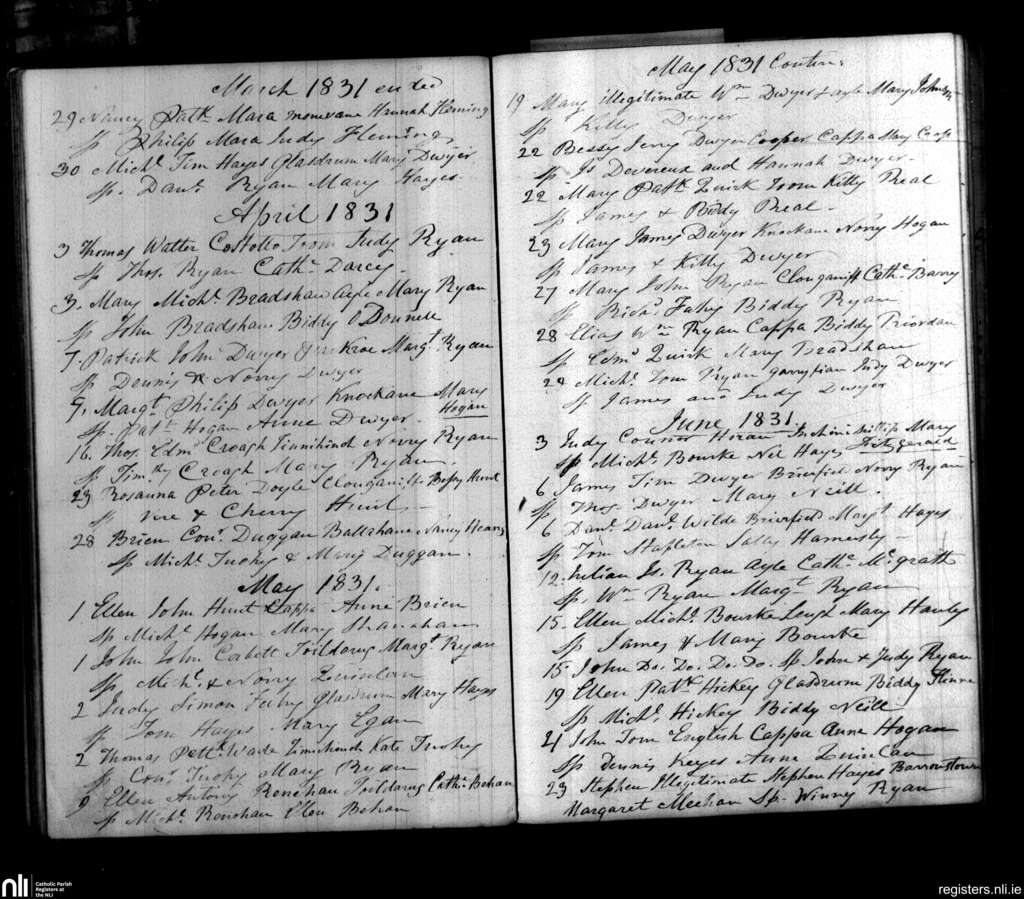 March 1831 ended
29 Nancy Patk Mara monevane Hannah Fleming
Sp Philip Mara Judy Fleming
30 Michl Tim Hayes Glasdrum Mary Dwyer
Sp. Danl Ryan Mary Hayes.
April 1831
3 Thomas Walter Costollo Toom Judy Ryan
Sp Thos. Ryan Cathe Darcy.
3. Mary Michl. Bradshaw Ayle Mary Ryan
Sp John Bradshaw Biddy O Donnell
7. Patrick John Dwyer Margt. Ryan
Sp Dennis & Norry Dwyer
9. Margt. Philip Dwyer Knockane Mary Hogan
Sp. Patt Hogan Anne Dwyer.
16. Thos. Edmd Croagh Norry Ryan
Sp Timthy Croagh Mary Ryan.
23 Rosanna Peter Doyle Clouganiffe Bessy Hunt
Sp Vere & Cherry Hunt
28 Brien Conr. Duggan Ballahane Nancy
Sp Michl. Tuohy & Mary Duggan.
May 1831.
1 Ellen John Hunt Cappa Anne Brien
Sp Michl Hogan Mary Shanahan
1 John John Corbett Toildarug Margt Ryan
Sp Michl. & Norry Quinlan
2 Judy Simon Fahy Glasdrum Mary Hayes
Sp Tom Hayes Mary Egan
2 Thomas Wade Kate Tuohy
Sp Conr. Tuohy Mary Ryan
9 Ellen Antony Renehan Toildarug Cathe Behan
Sp Michl. Renehan Ellen Behan
May 1831 Contin:
19 Mary illegitimate Wm Dwyer Ayle Mary Johnson
Sp Kitty Dwyer
22 Bessy Jerry Dwyer Cooper Cappa Mary
Sp Js Devereux and Hannah Dwyer.
22 Mary Patk Quirk Toom Kitty Preal
Sp James & Biddy Preal.
23 Mary James Dwyer Knockane Norry Hogan
Sp James & Kitty Dwyer
27 Mary John Ryan Clouganiff Cathe Barry
Sp Richd. Fahy Biddy Ryan
28 Elias Wm Ryan Cappa Biddy Riordan
Sp Edmd Quirk Mary Bradshaw
28 Michl. Tom Ryan Judy Dwyer
Sp James and Judy Dwyer
June 1831.
3 Judy Connor Horan Mary Fitzgerald
Sp Michl. Bourke Nel Hayes
6 James Tim Dwyer Brierfield Norry Ryan
Sp Thos. Dwyer Mary Neill.
6 Danl. Danl. Wilde Brierfield Margt Hayes
Sp Tom Stapleton Sally Hamersly
12. Julian Js. Ryan Ayle Cathe McGrath
Sp. Wm Ryan Margt Ryan
15. Ellen Michl. Bourke Leugh Mary Hanly
Sp James & Mary Bourke
15 John Do. Do. Do. Do. Sp John & Judy Ryan
19 Ellen Patk Hickey Glasdrum Biddy
Sp Michl. Hickey Biddy Neill
21 John Tom English Cappa Anne Hogan
Sp Dennis Keyes Anne Quinlan
23 Stephen Illegitimate Stephen Hayes Barronstown
Margaret Meehan Sp. Winny Ryan
nli
Catholic Parish
Registers at
the NLI
registers.nli.ie